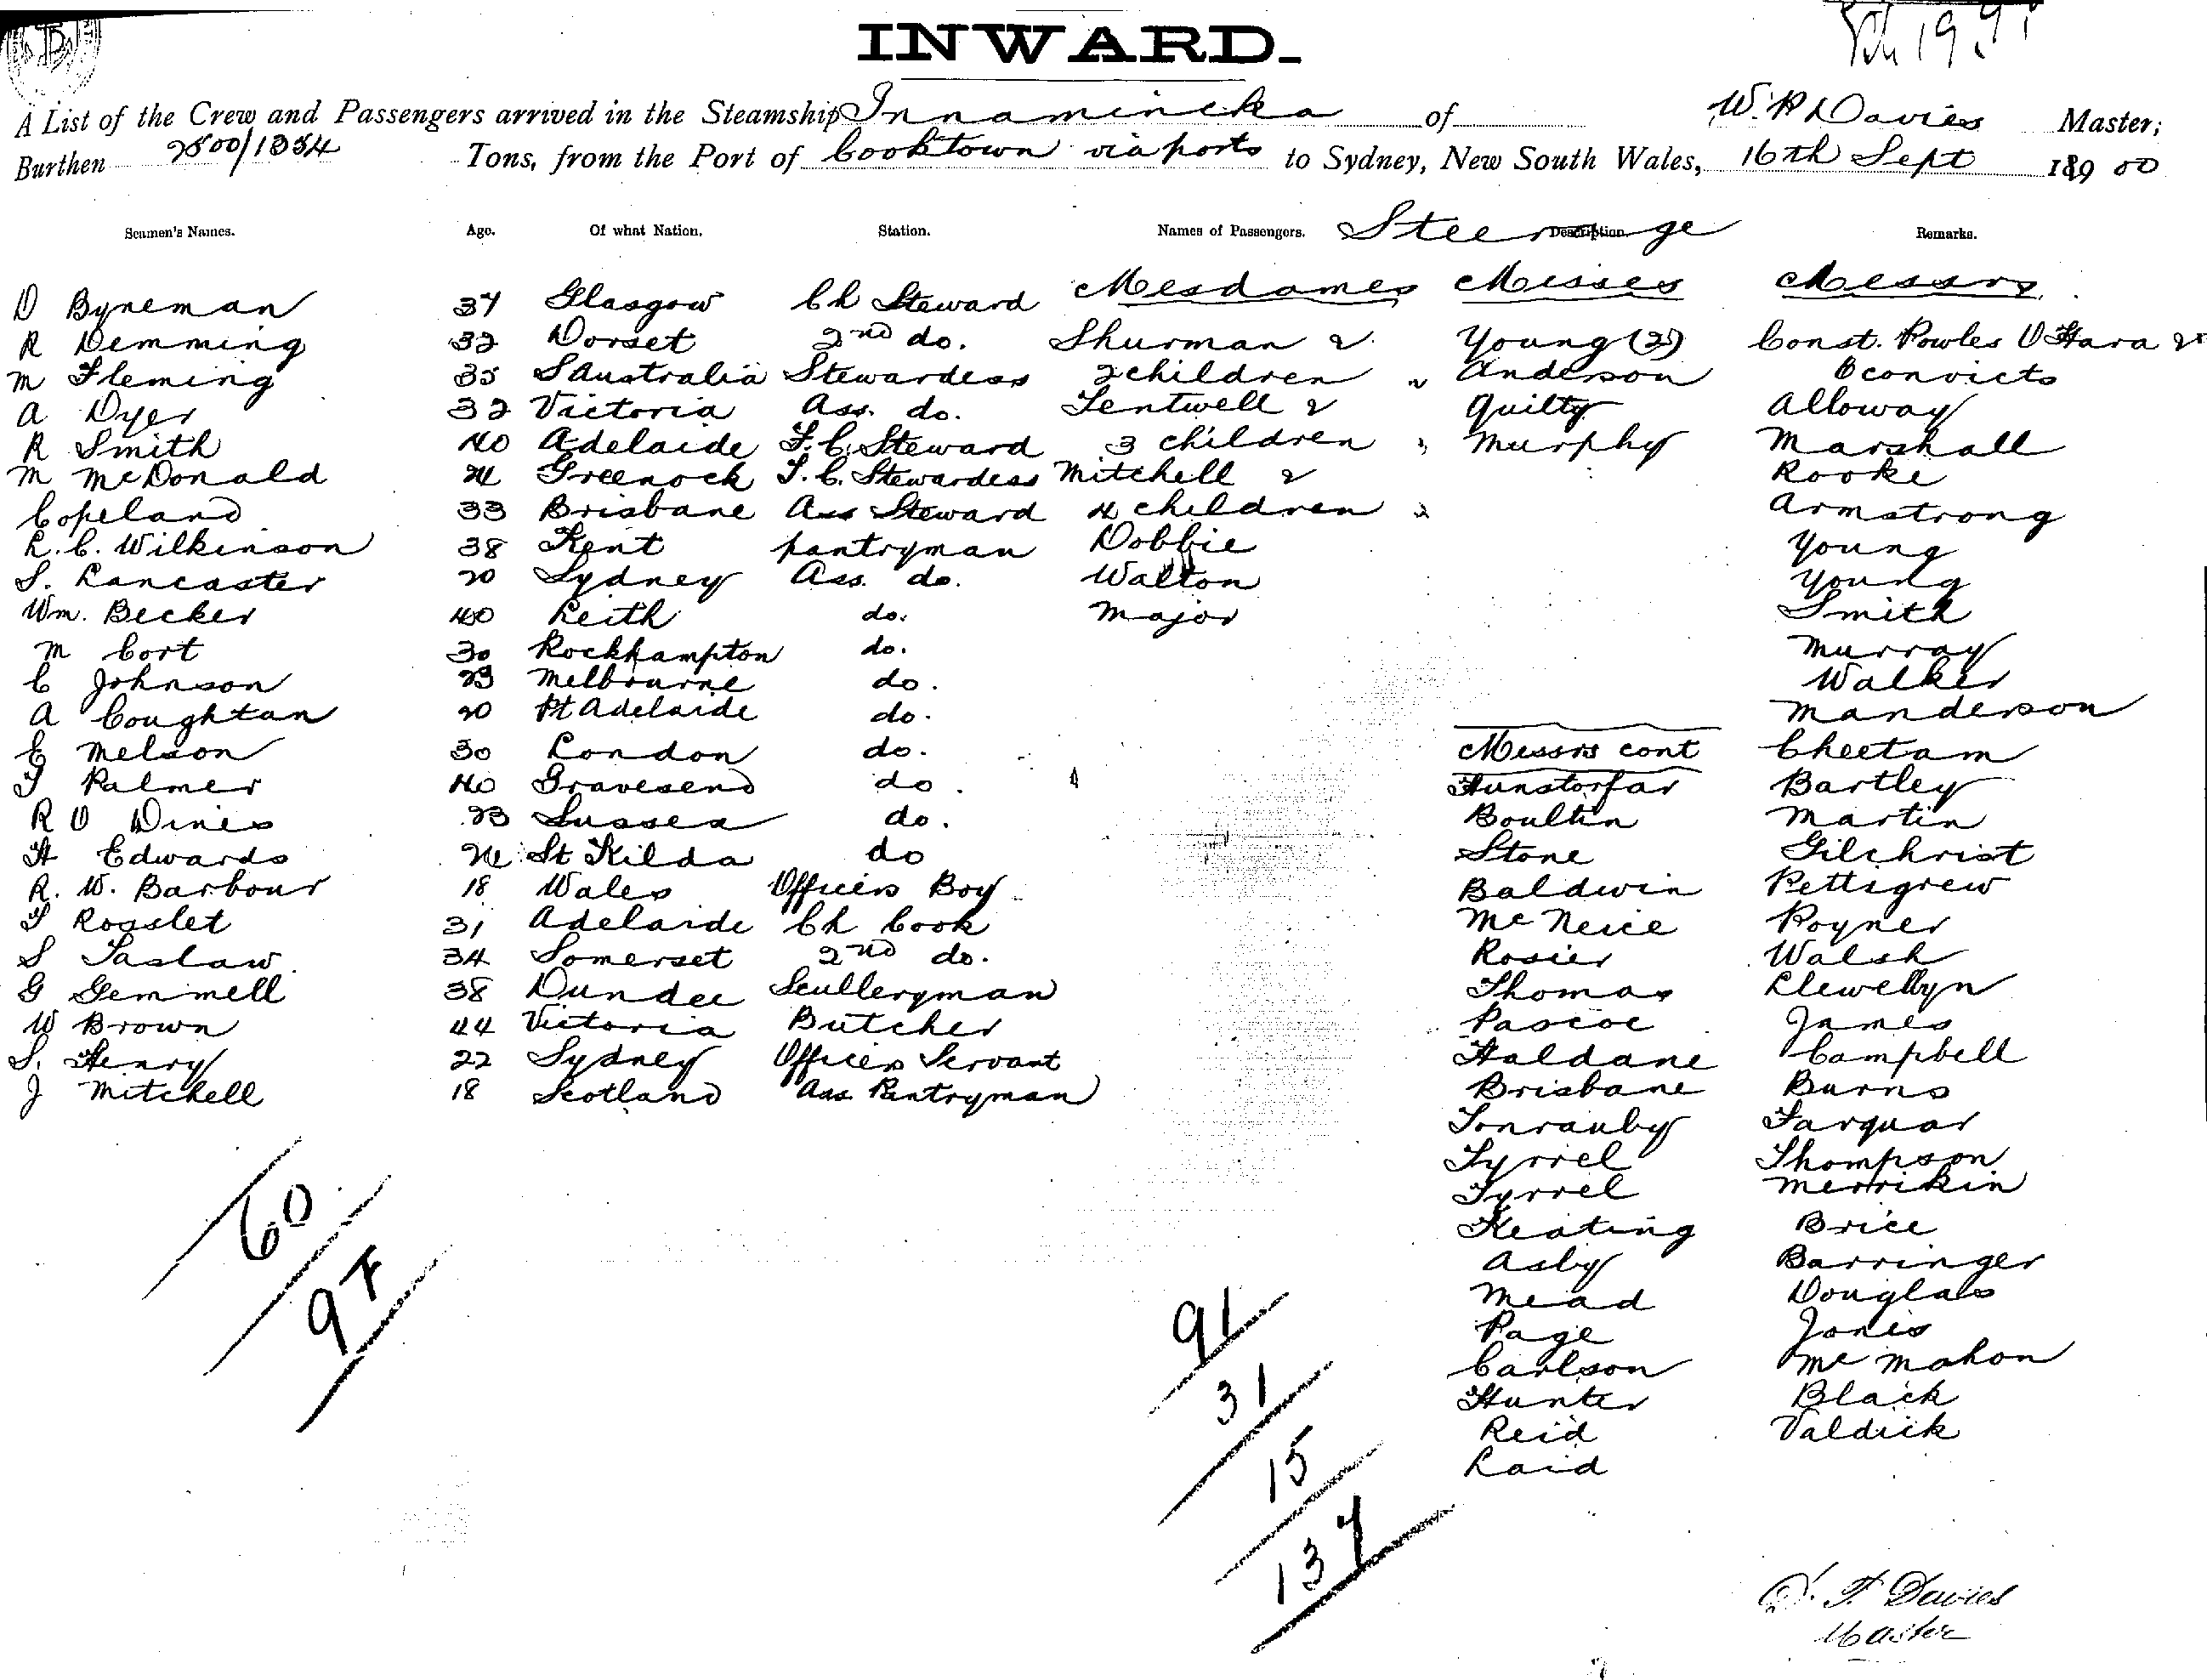 INWARD.
A List of the Crew and Passengers arrived in the Steamship Innamincka of W. R Davies Master;
Burthen 2500/1354 Tons, from the Port of Cooktown via ports to Sydney, New South Wales, 16th Sept 189 00
Seamen's Names. Age. Of what Nation. Station. Names of Passengers. Steerage Description. Remarks.
Mesdames Misses Messrs
D Byneman 37 Glasgow Ch Steward
R Demming 32 Dorset 2nd do. Shurman & Young (2) Const. Powles O'Hara &
M Fleming 35 S Australia Stewardess 2 children " Anderson 6 convicts
A Dyer 32 Victoria Ass. do. Tentwell & Quilty Alloway
R Smith 40 Adelaide F.C. Steward 3 children " Murphy Marshall
M McDonald 24 Greenock F.C. Stewardess Mitchell & Rooke
Copeland 33 Brisbane Ass Steward 4 children " Armstrong
L.C. Wilkinson 38 Kent pantryman Dobbie Young
S. Lancaster 20 Sydney Ass. do. Walton Young
Wm. Becker 40 Leith do. Major Smith
M Cort 30 Rockhampton do. Murray
C Johnson 23 Melbourne do. Walker
A Coughtan 20 Pt Adelaide do. Manderson
E Melson 30 London do. Messrs cont Cheetam
T Palmer 40 Gravesend do. Hunstorfar Bartley
R O Dines 23 Sussex do. Boultin Martin
H Edwards 24 St Kilda do Stone Gilchrist
R. W. Barbour 18 Wales Officers Boy Baldwin Pettigrew
T Rosslet 31 Adelaide Ch Cook McNeice Poyner
S Taslaw 34 Somerset 2nd do. Rosier Walsh
G Gemmell 38 Dundee Sculleryman Thomas Llewellyn
W Brown 44 Victoria Butcher Pascoe James
S. Henry 22 Sydney Officers Servant Haldane Campbell
J Mitchell 18 Scotland Ass Pantryman Brisbane Burns
Tonrauby Farquar
Tyrrel Thompson
Tyrrel Merrikin
Keating Brice
Asby Barringer
Mead Douglas
Page Jones
Carlson McMahon
Hunter Black
Reid Valdick
Laid
60
97
91
31
15
137
Davies
Master